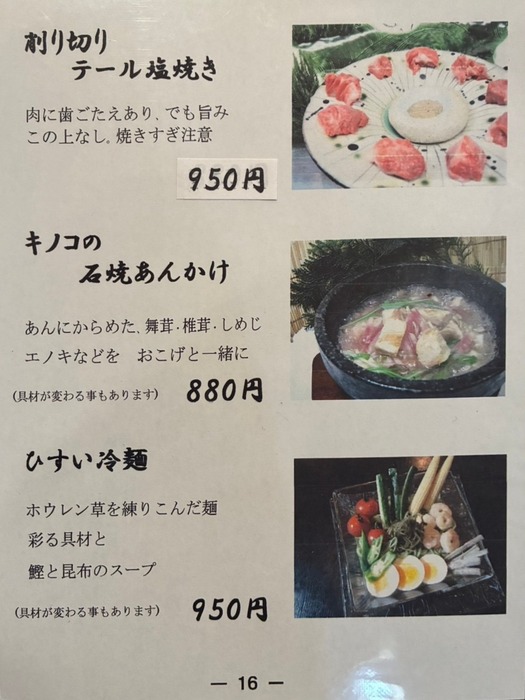 削り切り
テール塩焼き
肉に歯ごたえあり、でも旨み
この上なし。焼きすぎ注意
950円
キノコの
石焼あんかけ
あんにからめた、舞茸・椎茸・しめじ
エノキなどを　おこげと一緒に
(具材が変わる事もあります)　880円
ひすい冷麺
ホウレン草を練りこんだ麺
彩る具材と
鰹と昆布のスープ
(具材が変わる事もあります)　950円
— 16 —